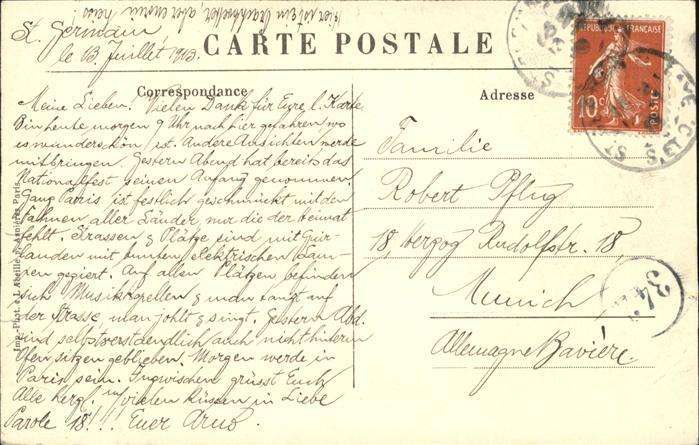 St. Germain,
le 13. Juillet 1913.
Hier ist ein aber enorm heiss!
CARTE POSTALE
Correspondance
Adresse
Meine Lieben. Vielen Dank für Eure l. Karte
Bin heute morgen 9 Uhr nach hier gefahren, wo
es wunderschön ist. Andere Ansichten werde
mitbringen. Gestern Abend hat bereits das
Nationalfest seinen Anfang genommen.
Ganz Paris ist festlich geschmückt mit den
Fahnen aller Länder nur die der Heimat
fehlt. Strassen & Plätze sind mit Guir-
landen mit bunten, elektrischen Lam-
pen geziert. Auf allen Plätzen befinden
sich Musikkapellen & man tanzt auf
der Strasse, man johlt & singt. Gestern Abd.
sind selbstverständlich auch nicht hinterm
Ofen sitzen geblieben. Morgen werde in
Paris sein. Inzwischen grüsst Euch
Alle herzl. mit vielen Küssen in Liebe
Parole 18!!! Euer Arno.
Familie
Robert Pflug
18, Herzog Rudolfstr. 18,
Munich
Allemagne Bavière.
RÉPUBLIQUE FRANÇAISE
10
POSTES
34
Imp.-Phot.
Paris